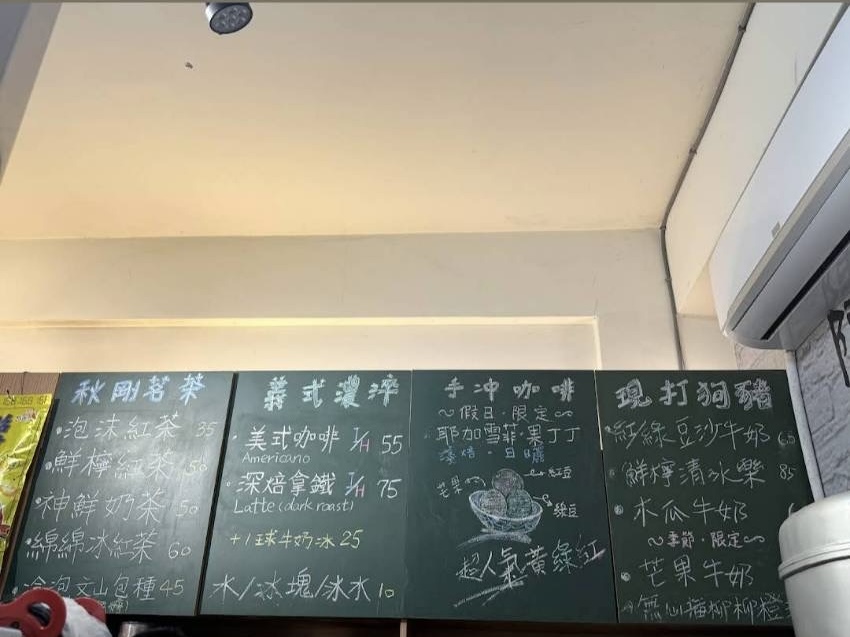 秋剛茗茶
泡沫紅茶 35
鮮檸紅茶 50
神鮮奶茶 50
綿綿冰紅茶 60
冷泡文山包種 45
義式濃淬
美式咖啡 I/H 55
Americano
深焙拿鐵 I/H 75
Latte (dark roast)
+1球牛奶冰 25
水/冰塊/冰水 10
手冲咖啡
～假日·限定～
耶加雪菲·果丁丁
淺焙·日曬
紅豆
芒果
綠豆
超人氣黃綠紅
現打狗豬
紅綠豆沙牛奶
鮮檸清冰樂 85
木瓜牛奶
～季節·限定～
芒果牛奶
柳橙